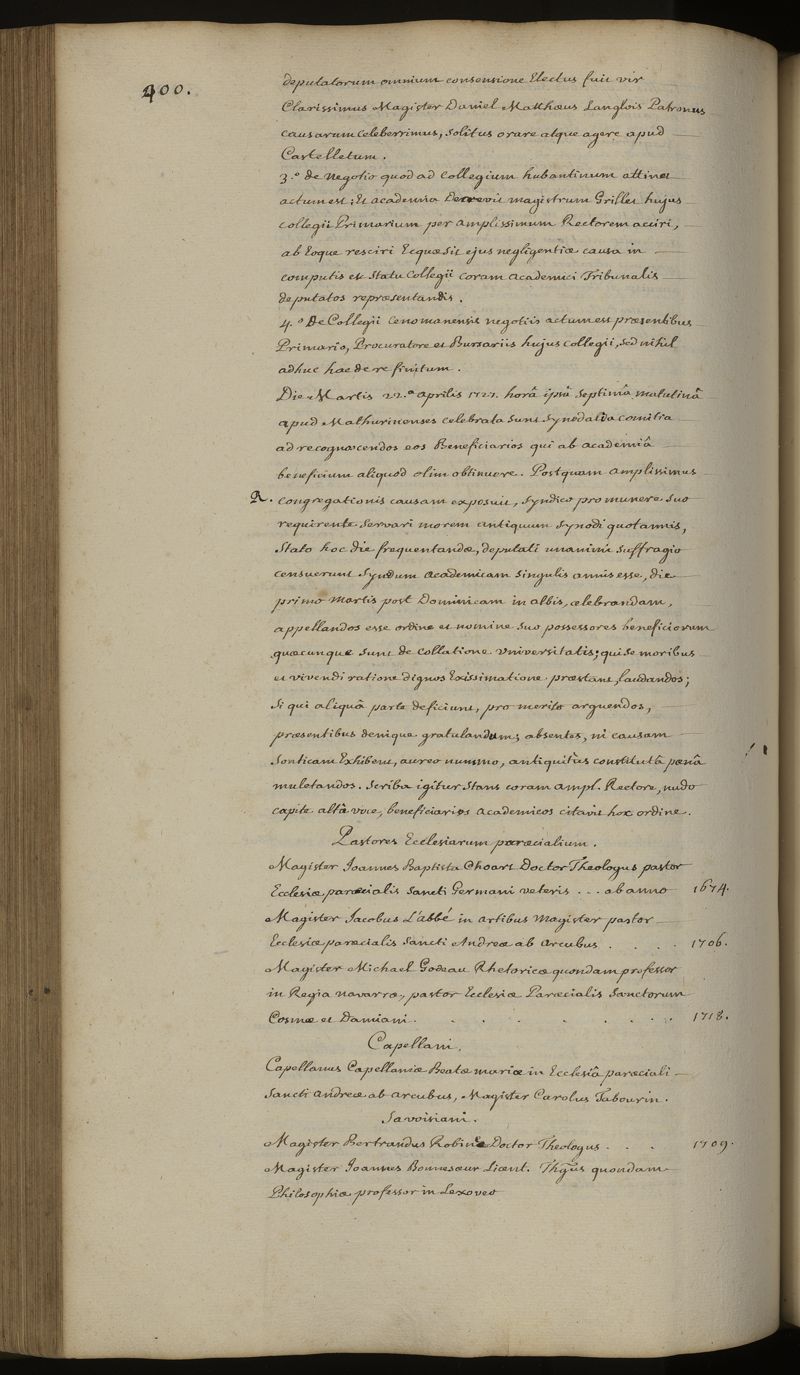 400.
deputatorum omnium consensione Electus fuit vir
Clarissimus Magister Daniel Matthæus Langlois Patronus
causarum celeberrimus, solitus orare atque agere apud
Castelletum.
3.° de negotio quod ad collegium hubantinum attinet
actum est; Et academia Decrevit magistrum Grillet hujus
collegii Primarium per amplissimum Rectorem acciri,
ab Eoque resciri Ecquæ sit ejus negligentiæ causa in
computis et statu Collegii coram academici Tribunalis
deputatos repræsentandis.
4.° De Collegii cenomanensis negotiis actum est præsentibus
Primario, Procuratore et Bursariis hujus collegii, sed nihil
adhuc hac de re finitum.
Die Martis 22.ª aprilis 1727. horâ ipsâ septimâ matutinâ
apud Mathurinenses celebrata sunt synodalia comitia
ad recognoscendos eos Beneficiarios qui ab academiâ
beneficium aliquod olim obtinuere. Postquam amplissimus
R. congregationis causam exposuit, syndico pro munere suo
requirente servari morem antiquum synodi quotannis,
stato hoc die frequentandæ, deputati unanimi suffragio
censuerunt synodum academicam singulis annis esse, die
primo martis post Dominicam in albis, celebrandam,
appellandos esse ordine et nomine suo possessores beneficiorum
quæcunque sunt de collatione universitatis; qui se moribus
et vivendi ratione dignos Existimatione præstant, laudandos;
si qui aliquâ parte deficiunt, pro merito arguendos,
præsentibus denique gratulandum; absentes, ni causam
sonticam Exhibent, aureo nummo, antiquitùs constitutâ pœnâ
mulctandos. Scriba igitur stans coram ampl. Rectore, nudo
capite altâ voce, beneficiarios academicos citavit hoc ordine.
Pastores Ecclesiarum paræcialium.
Magister Joannes Baptista Choart Doctor Theologus pastor
Ecclesiæ paræcialis sancti Germani veteris ... ab anno 1674.
Magister Jacobus L'abbé in artibus magister pastor
Ecclesiæ paræcialis sancti Andreæ ab arcubus . . . . 1706.
Magister Michael Godeau Rhetoricæ quondam professor
in Regia navarra, pastor Ecclesiæ Paræcialis sanctorum
Cosmæ et Damiani . . . . . . . . 1718.
Capellani.
Capellanus Capellaniæ Beatæ mariæ in Ecclesiâ paræciali
sancti andreæ ab arcubus, Magister Carolus Tabourin.
Savoisiani.
Magister Bertrandus Robine Doctor Theologus . . . 1709.
Magister Joannes Bonnesœur Licent. Thgūs quondam
Philosophiæ professor in Lexoveo